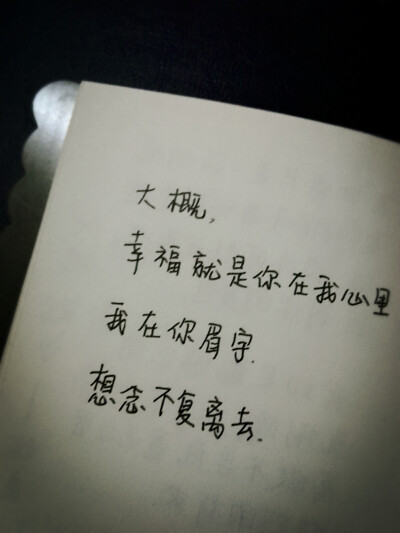 大概,
幸福就是你在我心里
我在你眉宇.
想念不复离去.